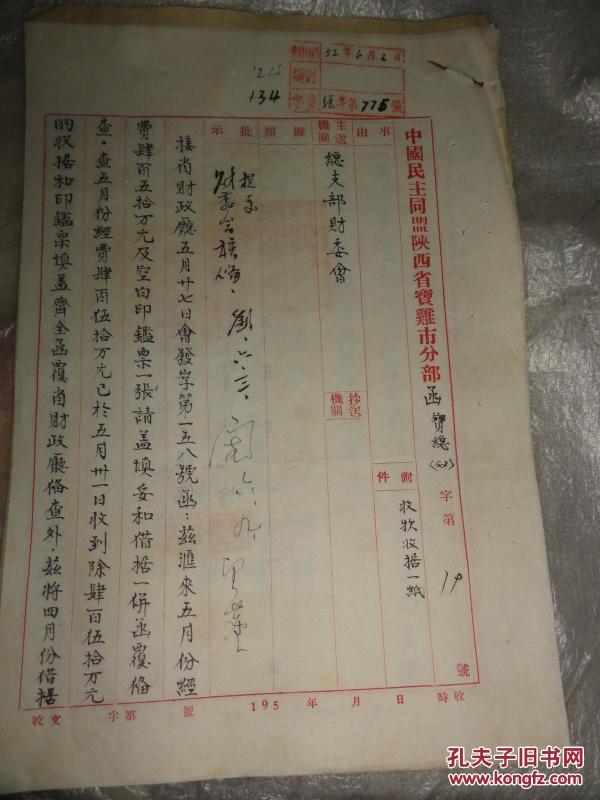 中國民主同盟陝西省寶雞市分部函
寶總(四)字第19號
事由
附件
收欵收據一紙
主送機關
總支部財委會
抄送機關
擬辦
批示
財委會核備
六.三.
六.九.
接省財政廳五月廿七日會發字第一五八號函：茲滙來五月份經
費肆百五拾万元及空白印鑑票一張請盖填妥和借據一併函覆偹
查。查五月份經費肆百伍拾万元已於五月卅一日收到除肆百伍拾万元
的收据和印鑑票填盖齊全函覆省財政廳偹查外.茲將四月份借据
收時 195 年 月 日
收文 字第 號
52年6月2日
字第775號
134
孔夫子旧书网
www.kongfz.com